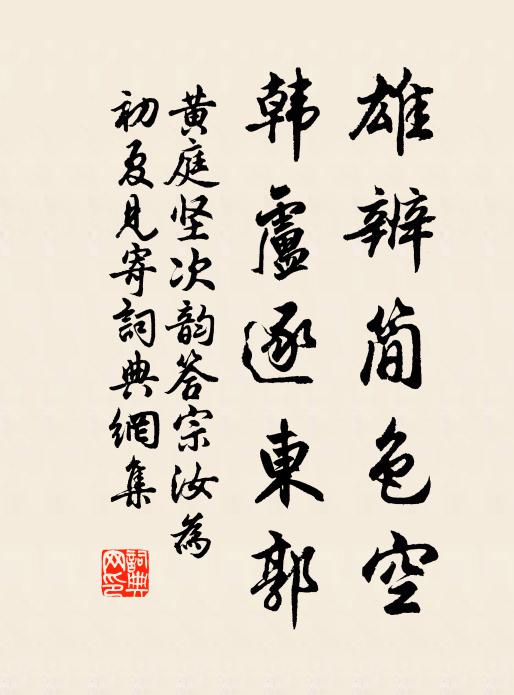 雄辨简色空
韓盧逐東郭
黄庭坚次韵答宗汝為
初夏見寄詞典網集
詞典
网印